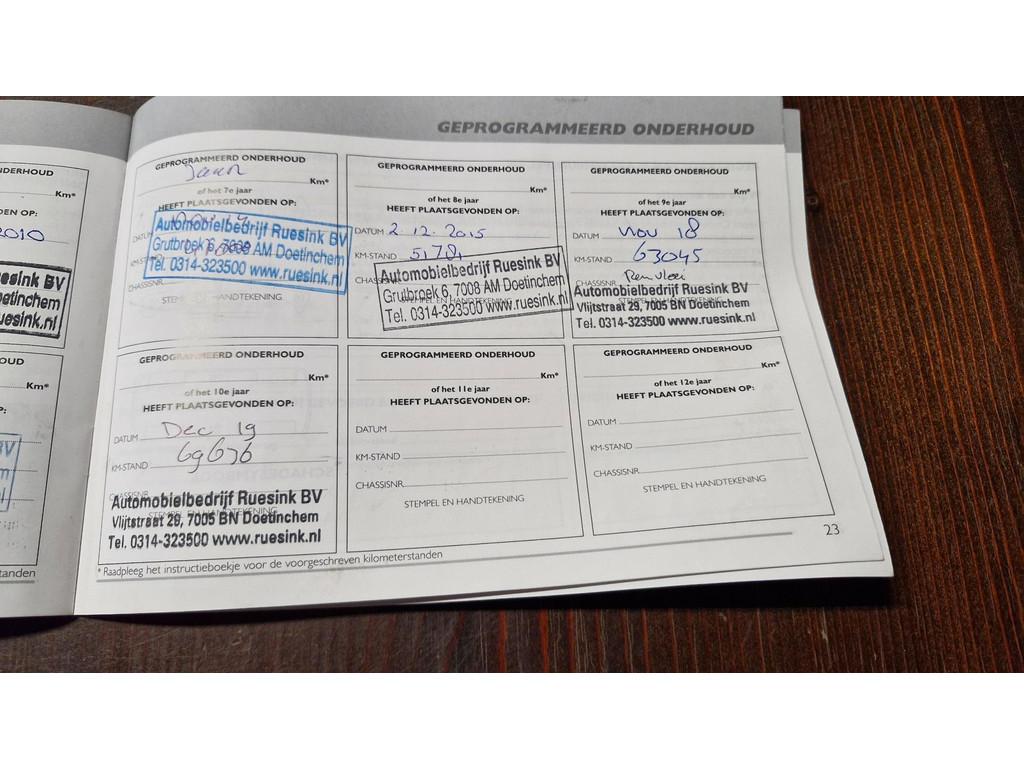 GEPROGRAMMEERD ONDERHOUD
DERHOUD
Km*
EN OP:
2010
esink BV
etinchem
uesink.nl
OUD
Km*
P:
BV
tanden
GEPROGRAMMEERD ONDERHOUD
Km*
of het 7e jaar
HEEFT PLAATSGEVONDEN OP:
Automobielbedrijf Ruesink BV
Grutbroek 6, 7008 AM Doetinchem
Tel. 0314-323500 www.ruesink.nl
CHASSISNR.
STEMPEL EN HANDTEKENING
GEPROGRAMMEERD ONDERHOUD
Km*
of het 8e jaar
HEEFT PLAATSGEVONDEN OP:
DATUM 2 12. 2015
KM-STAND
CHASSISNR.
Automobielbedrijf Ruesink BV
Grutbroek 6, 7008 AM Doetinchem
STEMPEL EN HANDTEKENING
Tel. 0314-323500 www.ruesink.nl
GEPROGRAMMEERD ONDERHOUD
Km*
of het 9e jaar
HEEFT PLAATSGEVONDEN OP:
DATUM Nov 18
KM-STAND 63045
Remvloei
Automobielbedrijf Ruesink BV
Vlijtstraat 29, 7005 BN Doetinchem
Tel. 0314-323500 www.ruesink.nl
GEPROGRAMMEERD ONDERHOUD
Km*
of het 10e jaar
HEEFT PLAATSGEVONDEN OP:
DATUM Dec 19
KM-STAND 69676
CHASSISNR.
Automobielbedrijf Ruesink BV
STEMPEL EN HANDTEKENING
Vlijtstraat 29, 7005 BN Doetinchem
Tel. 0314-323500 www.ruesink.nl
GEPROGRAMMEERD ONDERHOUD
Km*
of het 11e jaar
HEEFT PLAATSGEVONDEN OP:
DATUM
KM-STAND
CHASSISNR.
STEMPEL EN HANDTEKENING
GEPROGRAMMEERD ONDERHOUD
Km*
of het 12e jaar
HEEFT PLAATSGEVONDEN OP:
DATUM
KM-STAND
CHASSISNR.
STEMPEL EN HANDTEKENING
* Raadpleeg het instructieboekje voor de voorgeschreven kilometerstanden
23